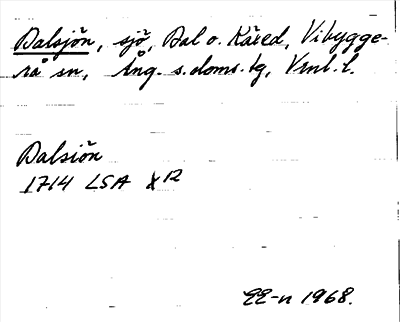 Dalsjön, sjö, Dal o. Käxed, Vibygge-
rå sn, Ång. s. doms. tg, Vrnl. l.
Dalsiön
1714 LSA X12
EE-n 1968.